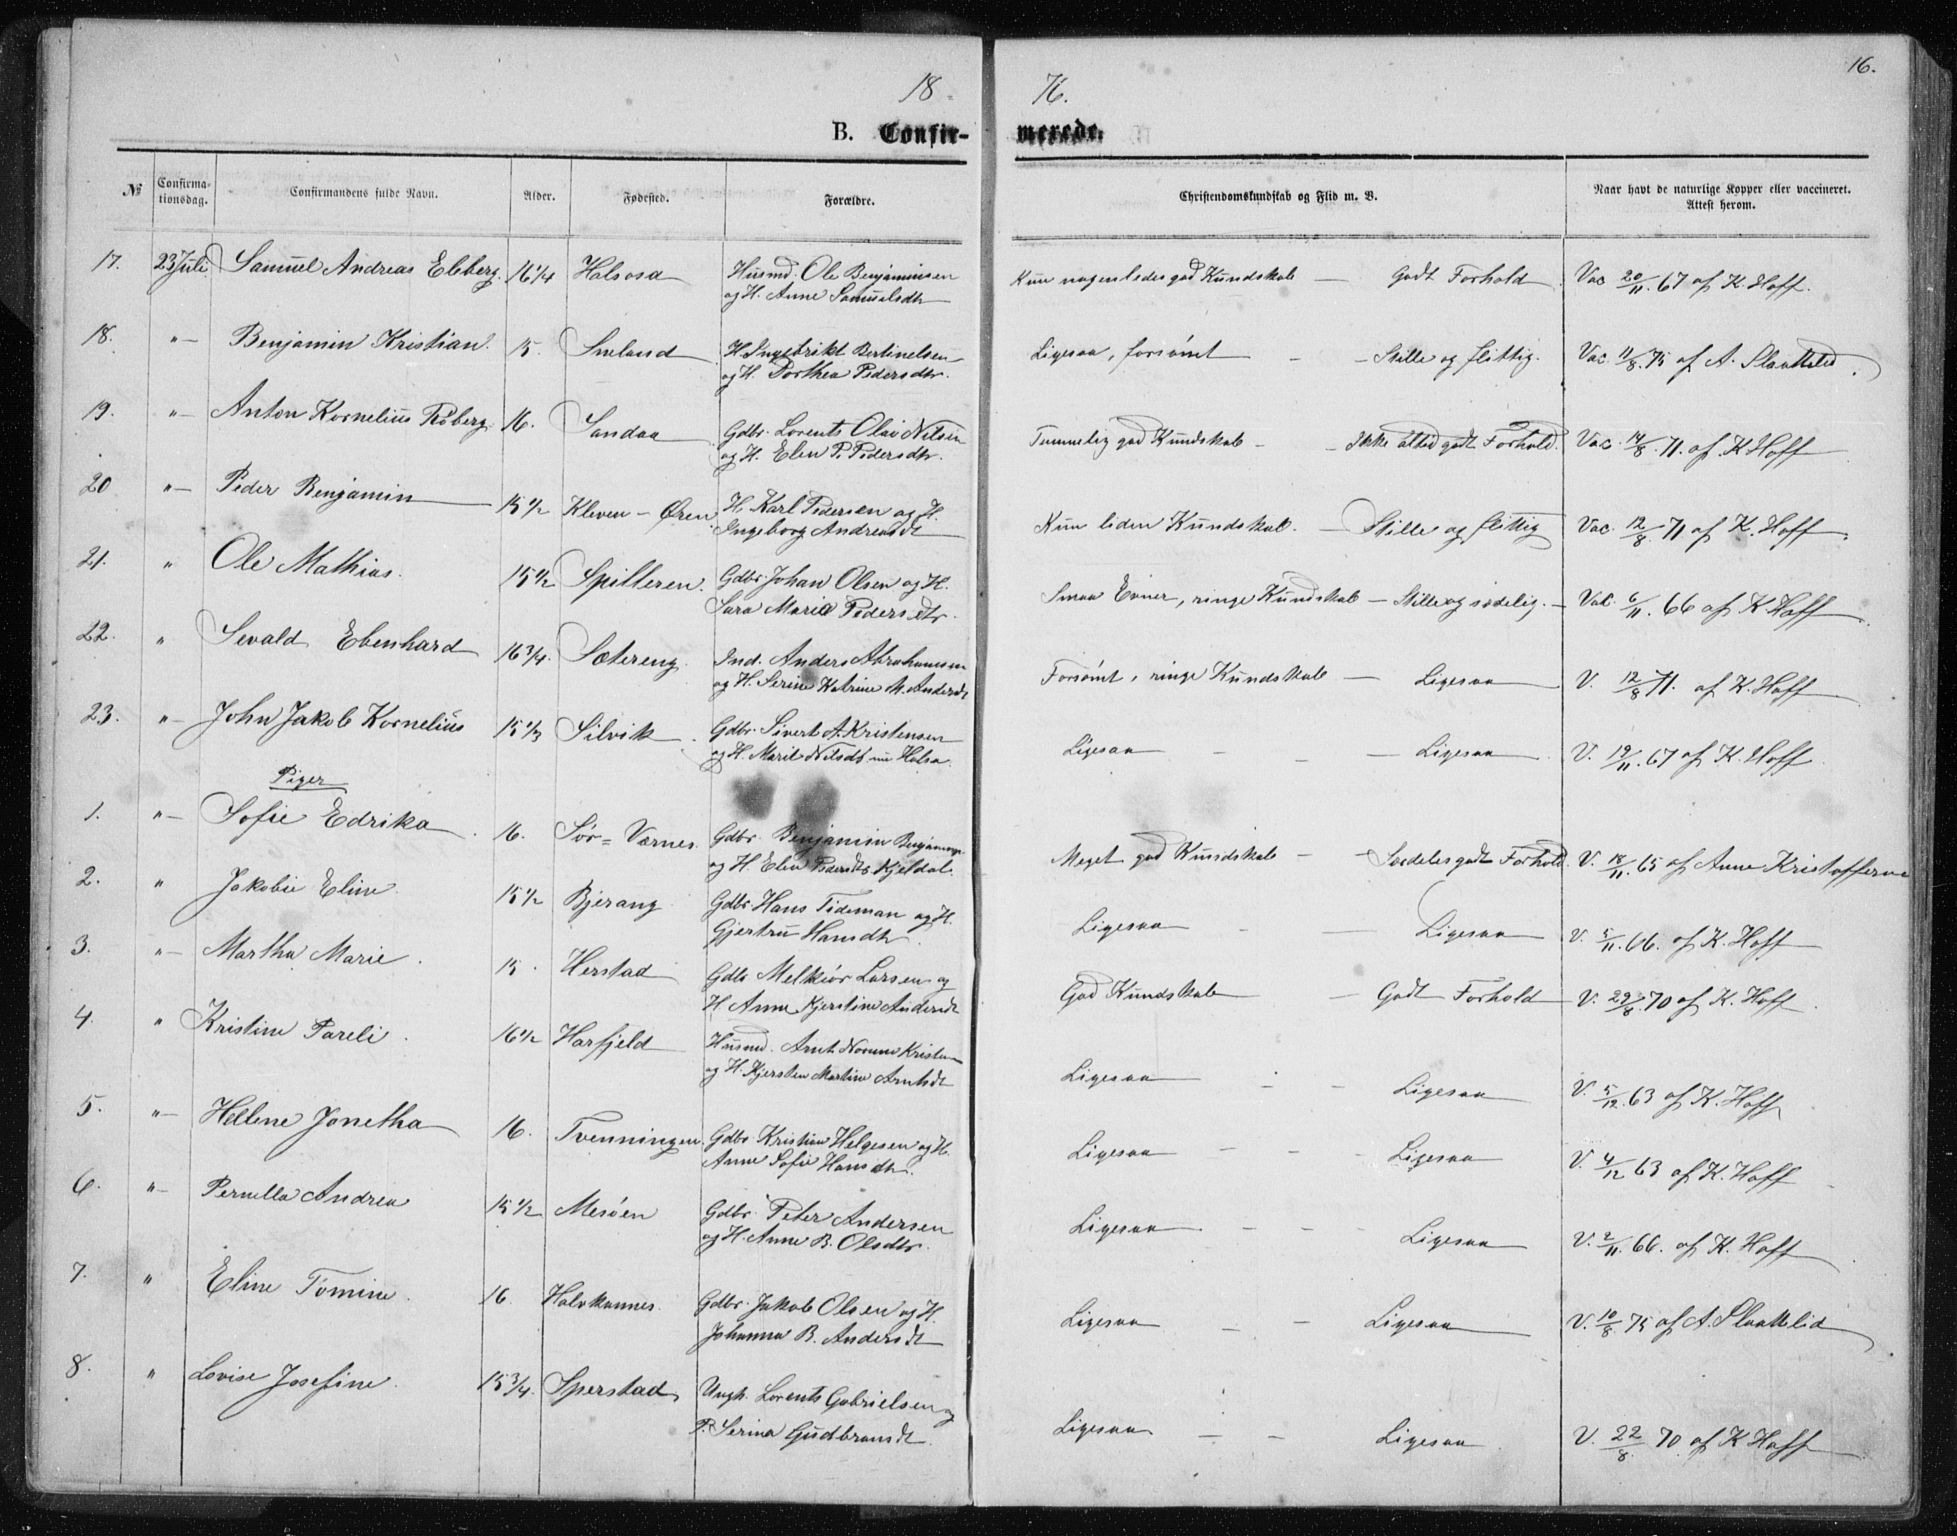 18
76.
16.
B. Confir-
merede.
№
Confirma-
tionsdag.
Confirmandens fulde Navn.
Alder.
Fødested.
Forældre.
Christendomskundskab og Flid m. V.
Naar havt de naturlige Kopper eller vaccineret.
Attest herom.
17. 23 Juli Samuel Andreas 16 1/4 Halsosa Husmd. Ole Benjaminsen
og H. Anne Samuelsdtr
Kun nogenledes god Kundskab — Godt Forhold Vac 20/11.67 af K. Hoff.
18. "— Benjamin Kristian. 15. Smeland H. Ingebrikt Bertinelsen
og H. Dorthea Pedersdtr.
Ligesaa, forsömt — Stille og flittig. Vac. 11/8.75 af A. Slaattelid
19. "— Anton Kornelius 16. Sandaa Gdbr. Lorents Olai Nilsen
og H. Elen P. Pedersdtr.
Temmelig god Kundskab — Ikke altid godt Forhold. Vac. 14/8.71. af K Hoff
20 "— Peder Benjamin 15 1/2 Kleven — Øren H. Karl Pedersen og H.
Ingeborg Andreasdt
Kun liden Kundskab. — Stille og flittig Vac. 12/8 71 af K. Hoff
21. " Ole Mathias. 15 1/2 Spilderen. Gdbr. Johan Olsen og H.
Sara Maria Pedersdtr.
Smaa Evner, ringe Kundskab — Stille og sædelig. — Vac. 6/11.66 af K Hoff
22. " Sevald Ebenhard 16 3/4. Sætereng. Ind. Anders Abrahamsen
og H. Serine Katrine M. Andersdt
Forsömt, ringe Kundskab — Ligesaa V. 12/8 71. af K. Hoff
23. "— John Jakob Kornelius 15 1/3 Silvik Gdbr. Sivert A. Kristensen
og H. Marit Nilsdt. nu Halsa.
Ligesaa — — Ligesaa V. 19/11.67 af K. Hoff
Piger
1. "— Sofie Edrika 16. Sør-Værnes. Gdbr. Benjamin
og H. Elen Kjeldal.
Meget god Kundskab — Særdeles godt Forhold V. 18/11.65 af Anne
2. " Jakobie Eline. 15 1/2 Bjerang Gdbr Hans Tideman og H.
Gjertru Hansdtr.
Ligesaa — — Ligesaa V. 5/11.66. af K. Hoff
3. "— Martha Marie. 15. Herstad Gdbr Melkiör Larsen og
H. Anne Kjerstine Andersdt
God Kundskab — Godt Forhold V. 29/8.70 af K. Hoff
4. " Kristine Pareli. 16 1/2 Harfjeld Husmd. Arnt
og H. Kjersten Martine Arntsdt
Ligesaa — — Ligesaa V. 5/12 63 af K. Hoff
5. "— Hellene Jonetha 16. Tvenningen. Gdbr Kristian Helgesen og H.
Anne Sofie Hansdtr.
Ligesaa — — — Ligesaa V. 4/12 63 af K. Hoff
6. "— Pernella Andrea 15 1/2 Mesöen Gdbr. Peter Andersen
og H. Anne B. Olsdtr.
Ligesaa. — — — Ligesaa V. 2/11.66. af K. Hoff
7. " Eline Tomine. 16 Halvkannes. Gdbr. Jakob Olsen og H.
Johanna B. Andersdt
Ligesaa — — Ligesaa V. 10/8 75 af A. Slaattelid
8. " Lovise Josefine. 15 3/4. Sperstad Ungk. Lorents Gabrielsen og
P. Serina Gudbransdt.
Ligesaa — — Ligesaa V. 22/8.70 af K Hoff